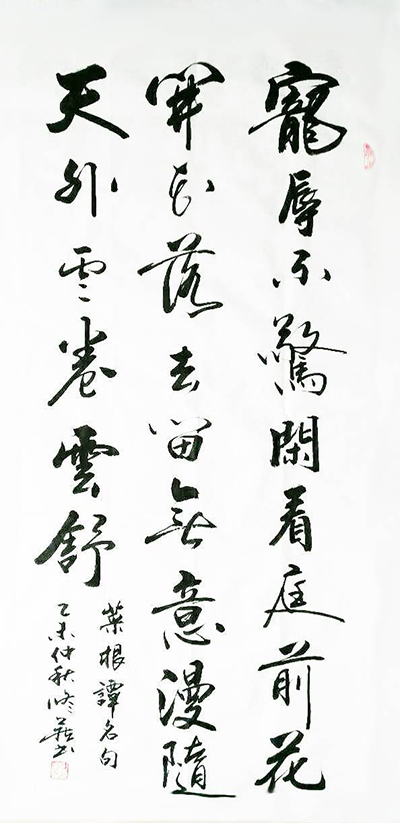 寵辱不驚閑看庭前花
開花落去留無意漫隨
天外雲卷雲舒
菜根譚名句
乙未仲秋